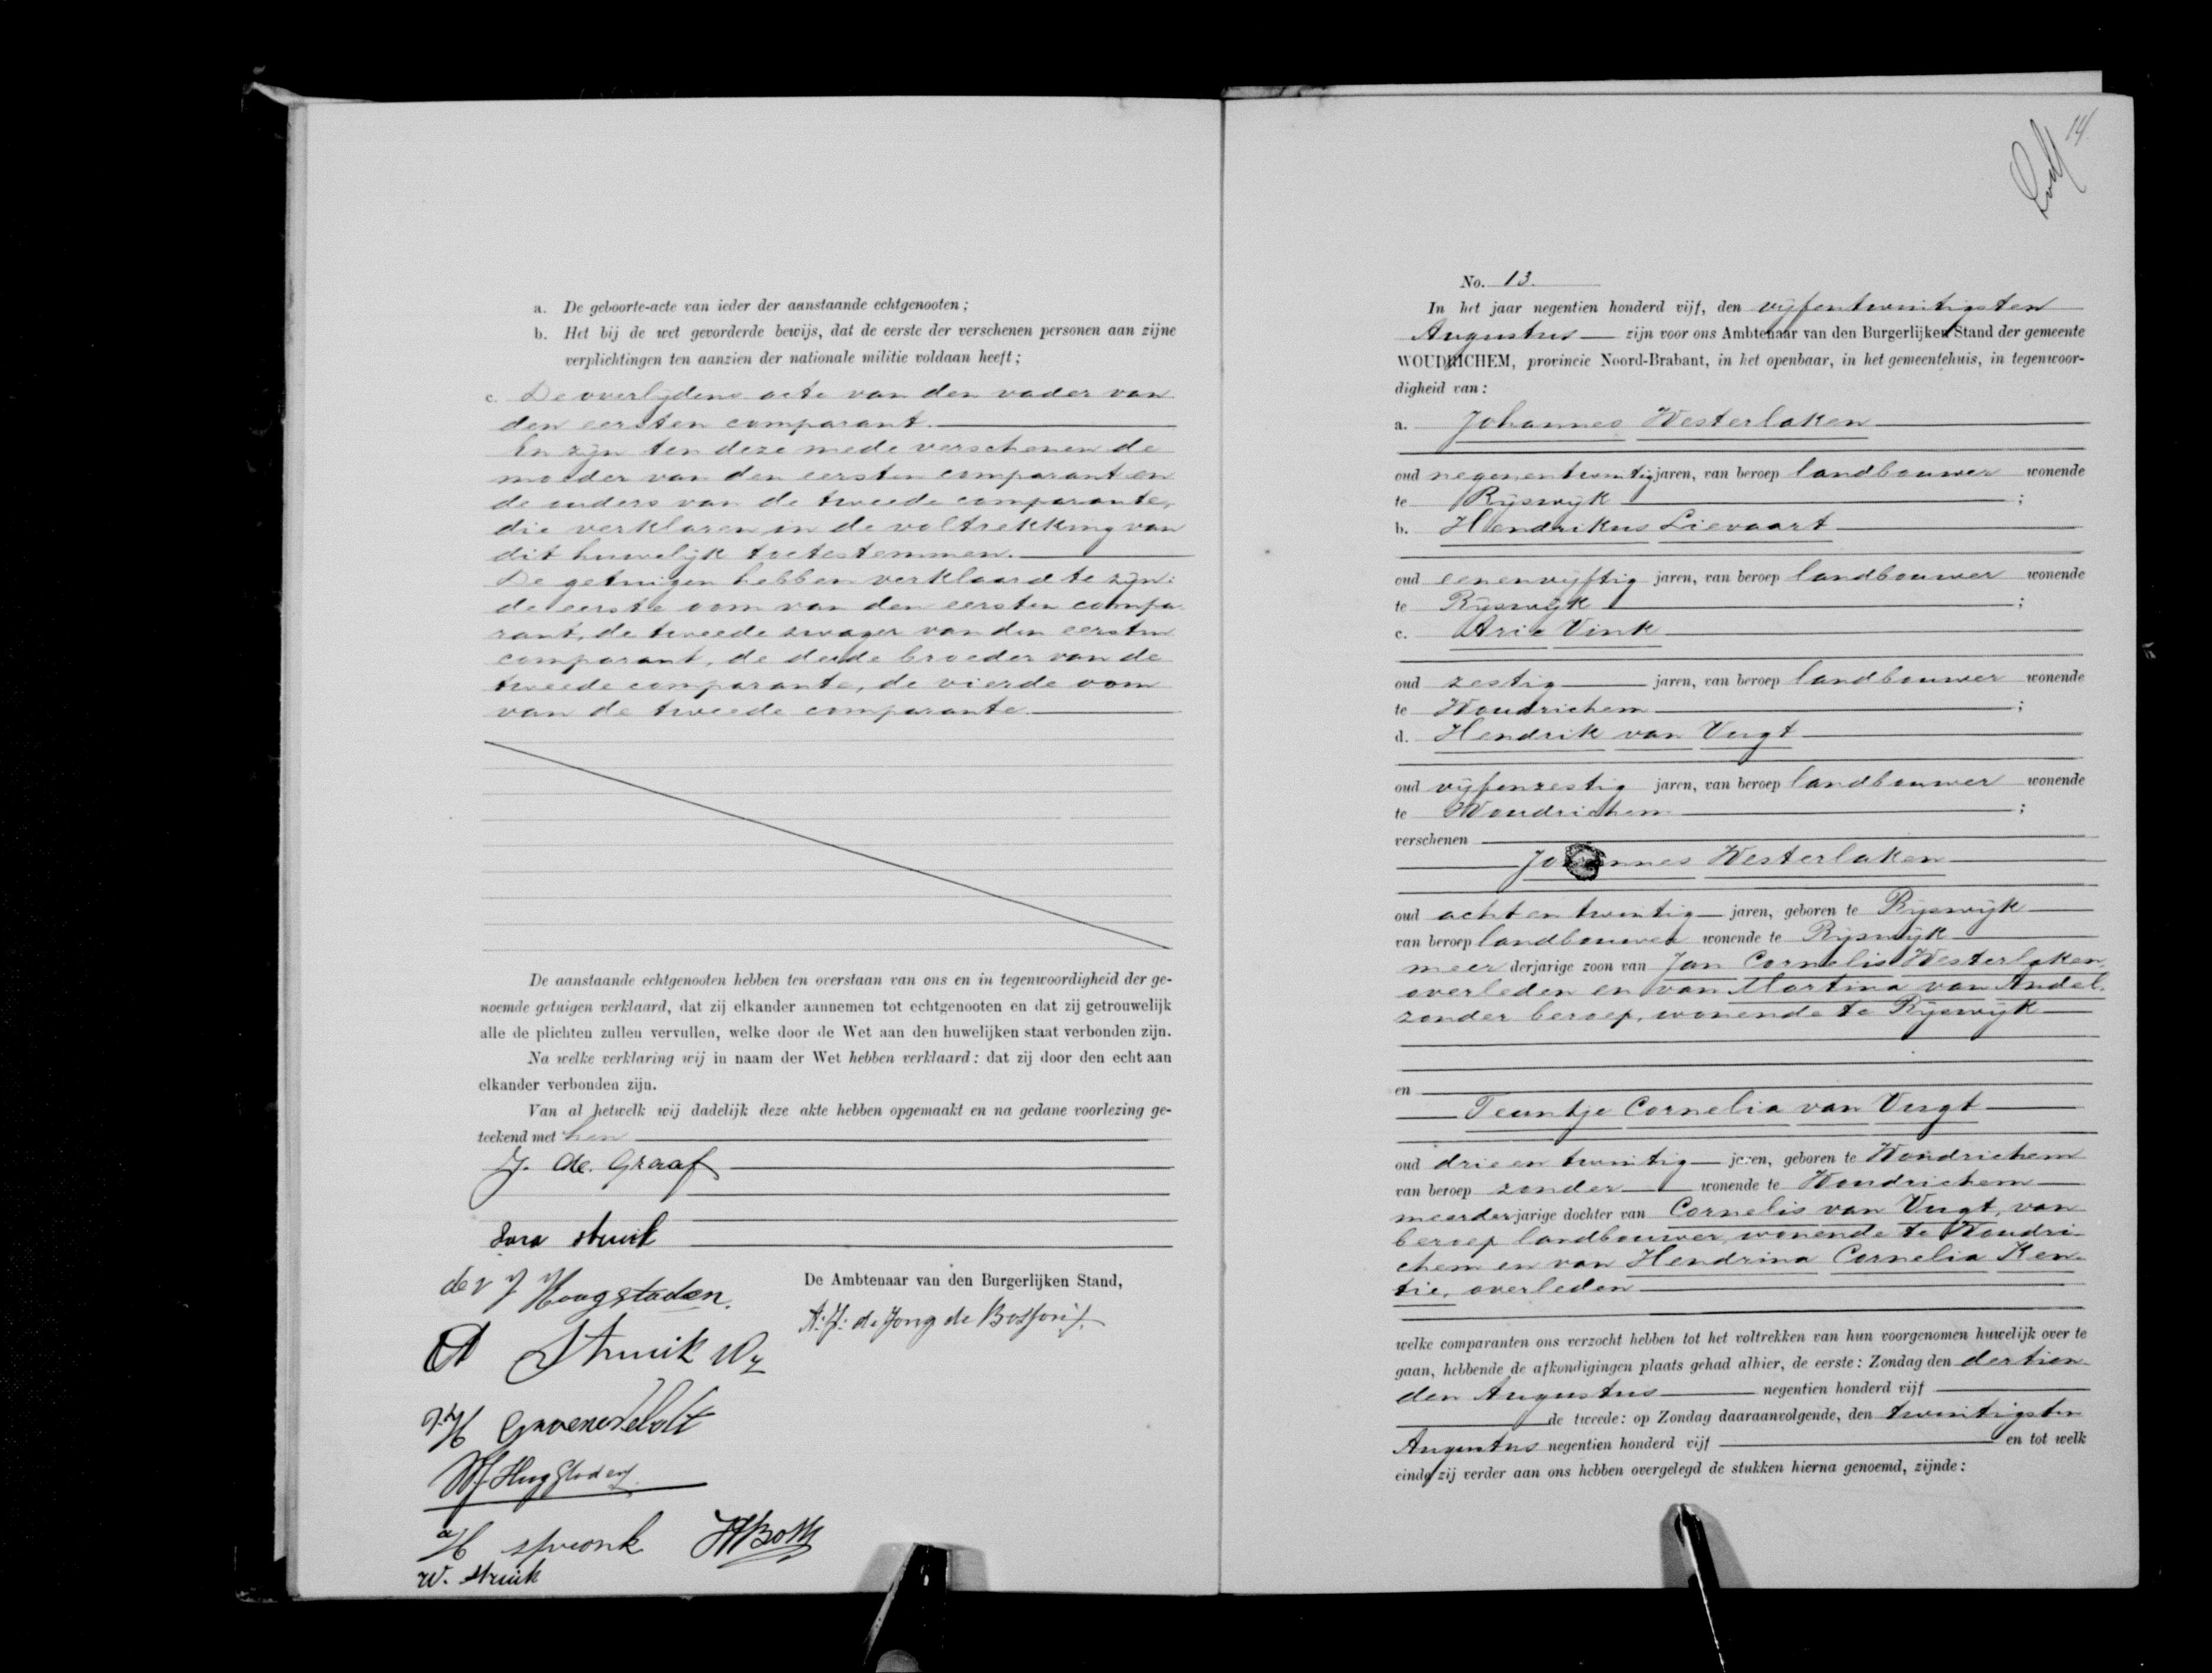 a. De geboorte-acte van ieder der aanstaande echtgenooten;
b. Het bij de wet gevorderde bewijs, dat de eerste der verschenen personen aan zijne
verplichtingen ten aanzien der nationale militie voldaan heeft;
c. De overlijdens acte van den vader van
den eersten comparant.
En zijn ten deze mede verschenen de
moeder van den eersten comparant en
de ouders van de tweede comparante,
die verklaren in de voltrekking van
dit huwelijk toetestemmen.
De getuigen hebben verklaard te zijn:
de eerste oom van den eersten compa
rant, de tweede zwager van den eersten
comparant, de derde broeder van de
tweede comparante, de vierde oom
van de tweede comparante.
De aanstaande echtgenooten hebben ten overstaan van ons en in tegenwoordigheid der ge-
noemde getuigen verklaard, dat zij elkander aannemen tot echtgenooten en dat zij getrouwelijk
alle de plichten zullen vervullen, welke door de Wet aan den huwelijken staat verbonden zijn.
Na welke verklaring wij in naam der Wet hebben verklaard: dat zij door den echt aan
elkander verbonden zijn.
Van al hetwelk wij dadelijk deze akte hebben opgemaakt en na gedane voorlezing ge-
teekend met hen
J. de. Graaf
Sara struik
der J Hoogstaden.
De Ambtenaar van den Burgerlijken Stand,
A. J. de Jong de
A Struik Wz
H
H spronk
W. struik
14
No. 13.
In het jaar negentien honderd vijf, den vijfentwintigsten
Augustus zijn voor ons Ambtenaar van den Burgerlijken Stand der gemeente
WOUDRICHEM, provincie Noord-Brabant, in het openbaar, in het gemeentehuis, in tegenwoor-
digheid van:
a. Johannes Westerlaken
oud negenentwintig jaren, van beroep landbouwer wonende
te Rijswijk ;
b. Hendrikus Lievaart
oud eenenvijftig jaren, van beroep landbouwer wonende
te Rijswijk ;
c. Arie Vink
oud zestig jaren, van beroep landbouwer wonende
te Woudrichem ;
d. Hendrik van Vugt
oud vijfenzestig jaren, van beroep landbouwer wonende
te Woudrichem ;
verschenen
Johannes Westerlaken
oud achtentwintig jaren, geboren te Rijswijk
van beroep landbouwer wonende te Rijswijk
meerderjarige zoon van Jan Cornelis Westerlaken,
overleden en van Martina van Andel.
zonder beroep, wonende te Rijswijk
en
Teuntje Cornelia van Vugt
oud drieentwintig jaren, geboren te Woudrichem
van beroep zonder wonende te Woudrichem
meerderjarige dochter van Cornelis van Vugt, van
beroep landbouwer, wonende te Woudri-
chem en van Hendrina Cornelia Ken-
tie, overleden
welke comparanten ons verzocht hebben tot het voltrekken van hun voorgenomen huwelijk over te
gaan, hebbende de afkondigingen plaats gehad alhier, de eerste: Zondag den dertien
den Augustus negentien honderd vijf
de tweede: op Zondag daaraanvolgende, den twintigsten
Augustus negentien honderd vijf en tot welk
einde zij verder aan ons hebben overgelegd de stukken hierna genoemd, zijnde: